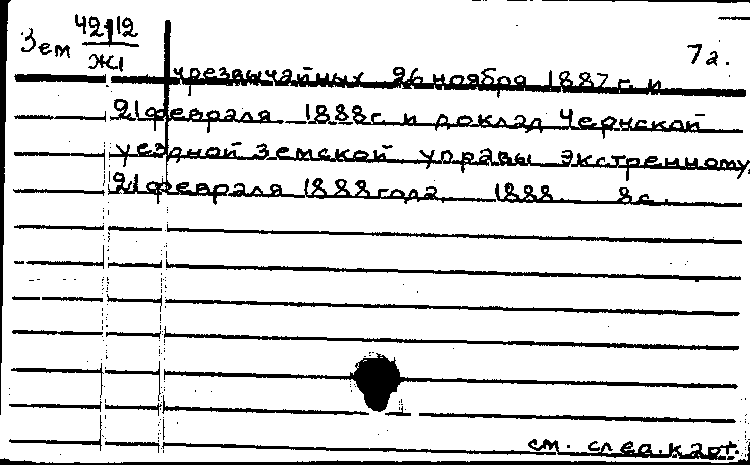 Зем 42-12
Ж1
7а.
чрезвычайных 26 ноября 1887 г. и
21 февраля 1888 г. и доклад Чернской
уездной земской управы экстренному,
21 февраля 1888 года. 1888. 8с.
см. след. карт.